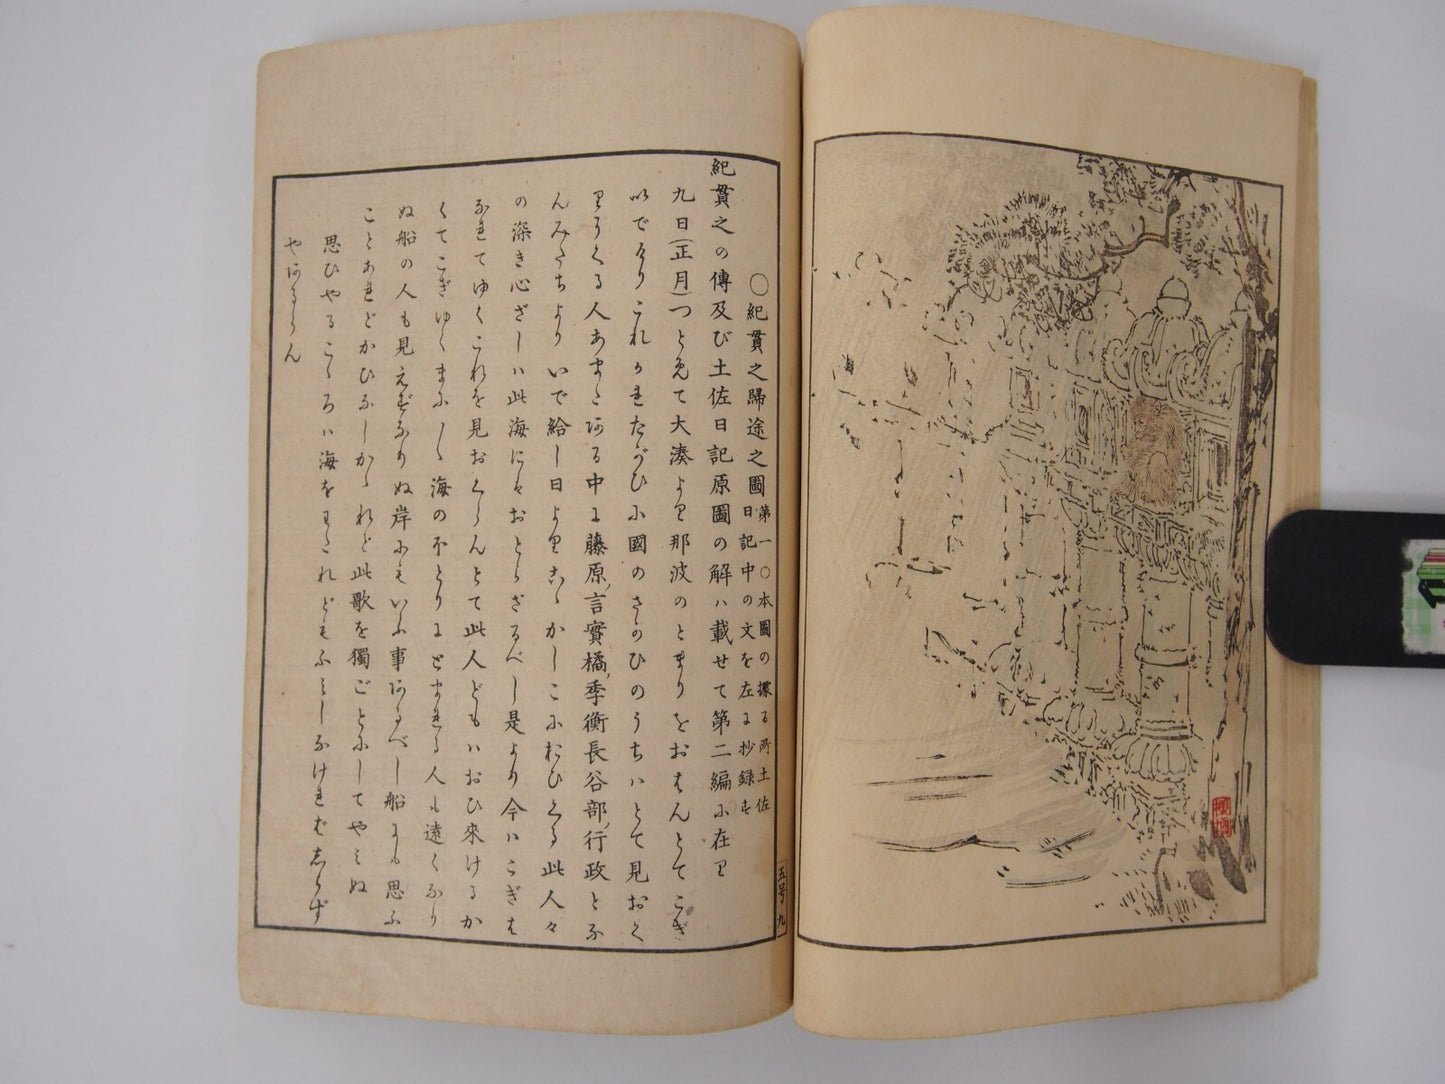 ○紀貫之歸途之圖 第一 ○本圖の據る所土佐
日記中の文を左に抄録す
紀貫之の傳及び土佐日記原圖の解ハ載せて第二編に在り
九日(正月)つとめて大湊より那波のとまりをおはんとてこぎ
いでけりこれかれたがひに國のさかひのうちハとて見おく
りにくる人あまたある中に藤原ノ言實橘ノ季衡長谷部ノ行政とな
んみたちより いで給し日よりこゝかしこにおひくる此人々
の深き心ざしハ此海にもおとらざるべし是より今ハこぎは
なれてゆくこれを見おくらんとて此人どもハおひ來けるか
くてこぎゆくまにまに海のほとりにとまれる人も遠くなり
ぬ船の人も見えずなりぬ岸にもいふ事あるべし船にも思ふ
ことあれどかひなしかゝれど此歌を獨ごとにしてやみぬ
思ひやるこゝろハ海をわたれどもふみしなければしらず
やあるらん
五号 九